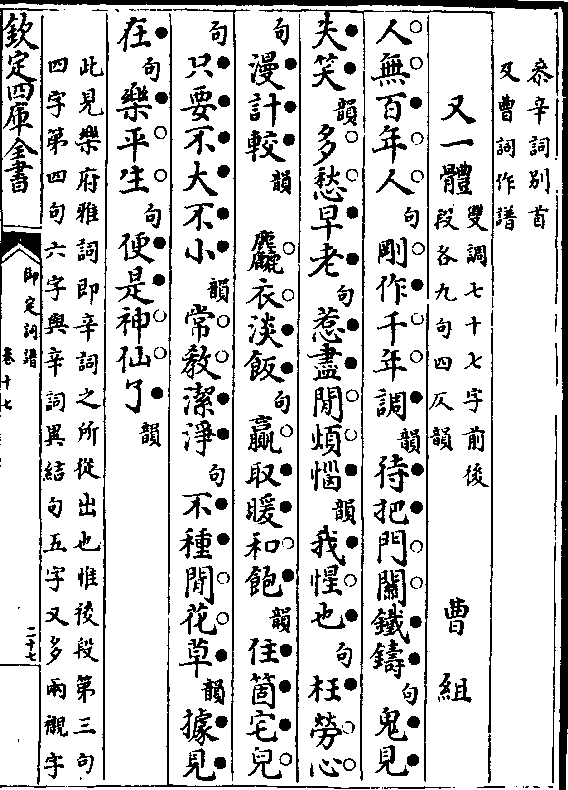 叅辛詞別首
又曹詞作譜
又一體 雙調七十七字前後
段各九句四仄韻 曹組
人無百年人句剛作千年調韻待把門關鐵鑄句鬼見
失笑韻多愁早老句惹盡閒煩惱韻我惺也句枉勞心
句漫計較韻 麤衣淡飯句贏取暖和飽韻住箇宅兒
句只要不大不小韻常教潔淨句不種閒花草韻據見
在句樂平生句便是神仙了韻
此見樂府雅詞即辛詞之所從出也惟後段第三句
四字第四句六字與辛詞異結句五字又多兩襯字
欽定四庫全書
御定詞譜
卷十七
二十七